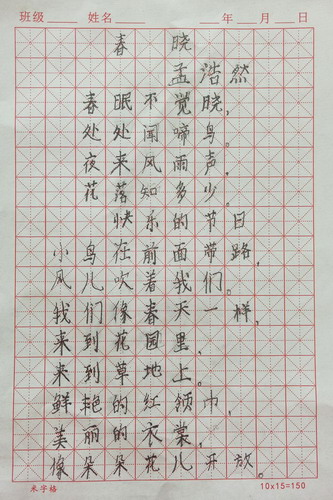 班级 姓名 年 月 日
春 晓
孟浩然
春眠不觉晓,
处处闻啼鸟。
夜来风雨声,
花落知多少。
快乐的节日
小鸟在前面带路,
风儿吹着我们。
我们像春天一样,
来到花园里,
来到草地上。
鲜艳的红领巾,
美丽的衣裳,
像朵朵花儿开放。
米字格 10x15=150